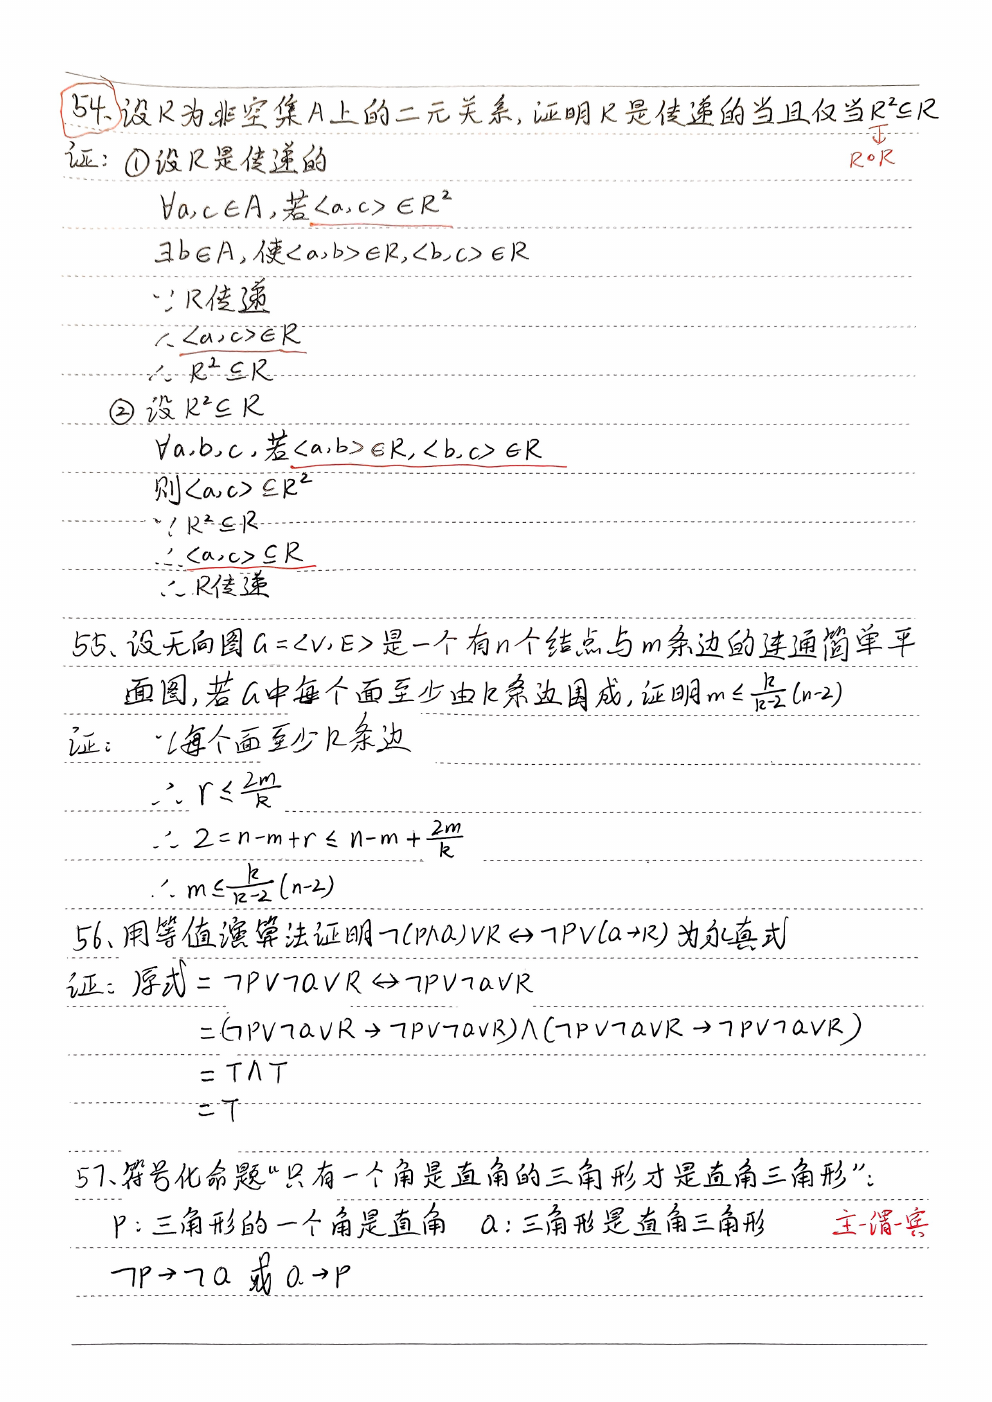 54、设R为非空集A上的二元关系,证明R是传递的当且仅当R²⊆R
⇓
R∘R
证: ①设R是传递的
∀a,c∈A,若<a,c>∈R²
∃b∈A,使<a,b>∈R,<b,c>∈R
∵R传递
∴<a,c>∈R
∴ R²⊆R
② 设R²⊆R
∀a,b,c,若<a,b>∈R,<b,c>∈R
则<a,c>⊆R²
∵R²⊆R
∴<a,c>⊆R
∴R传递
55、设无向图G=<V,E>是一个有n个结点与m条边的连通简单平
面图,若G中每个面至少由k条边围成,证明m≤k/(k-2)(n-2)
证: ∵每个面至少k条边
∴ r≤2m/k
∴ 2=n-m+r≤n-m+2m/k
∴ m≤k/(k-2)(n-2)
56、用等值演算法证明¬(P∧Q)∨R↔¬P∨(Q→R)为永真式
证: 原式=¬P∨¬Q∨R↔¬P∨¬Q∨R
=(¬P∨¬Q∨R→¬P∨¬Q∨R)∧(¬P∨¬Q∨R→¬P∨¬Q∨R)
=T∧T
=T
57、符号化命题“只有一个角是直角的三角形才是直角三角形”:
P:三角形的一个角是直角 Q:三角形是直角三角形 主-谓-宾
¬P→¬Q 或 Q→P